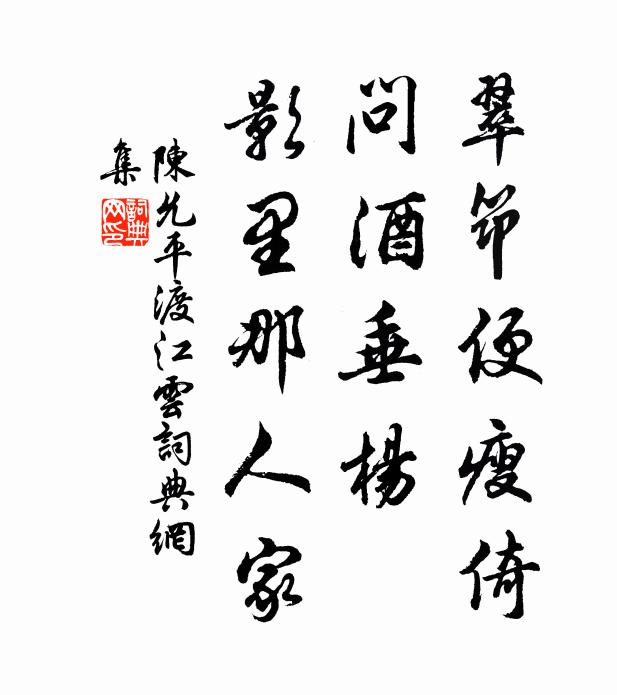 翠筇便瘦倚
問酒垂楊
影里那人家
陳允平渡江雲詞典網
集
詞典
网印